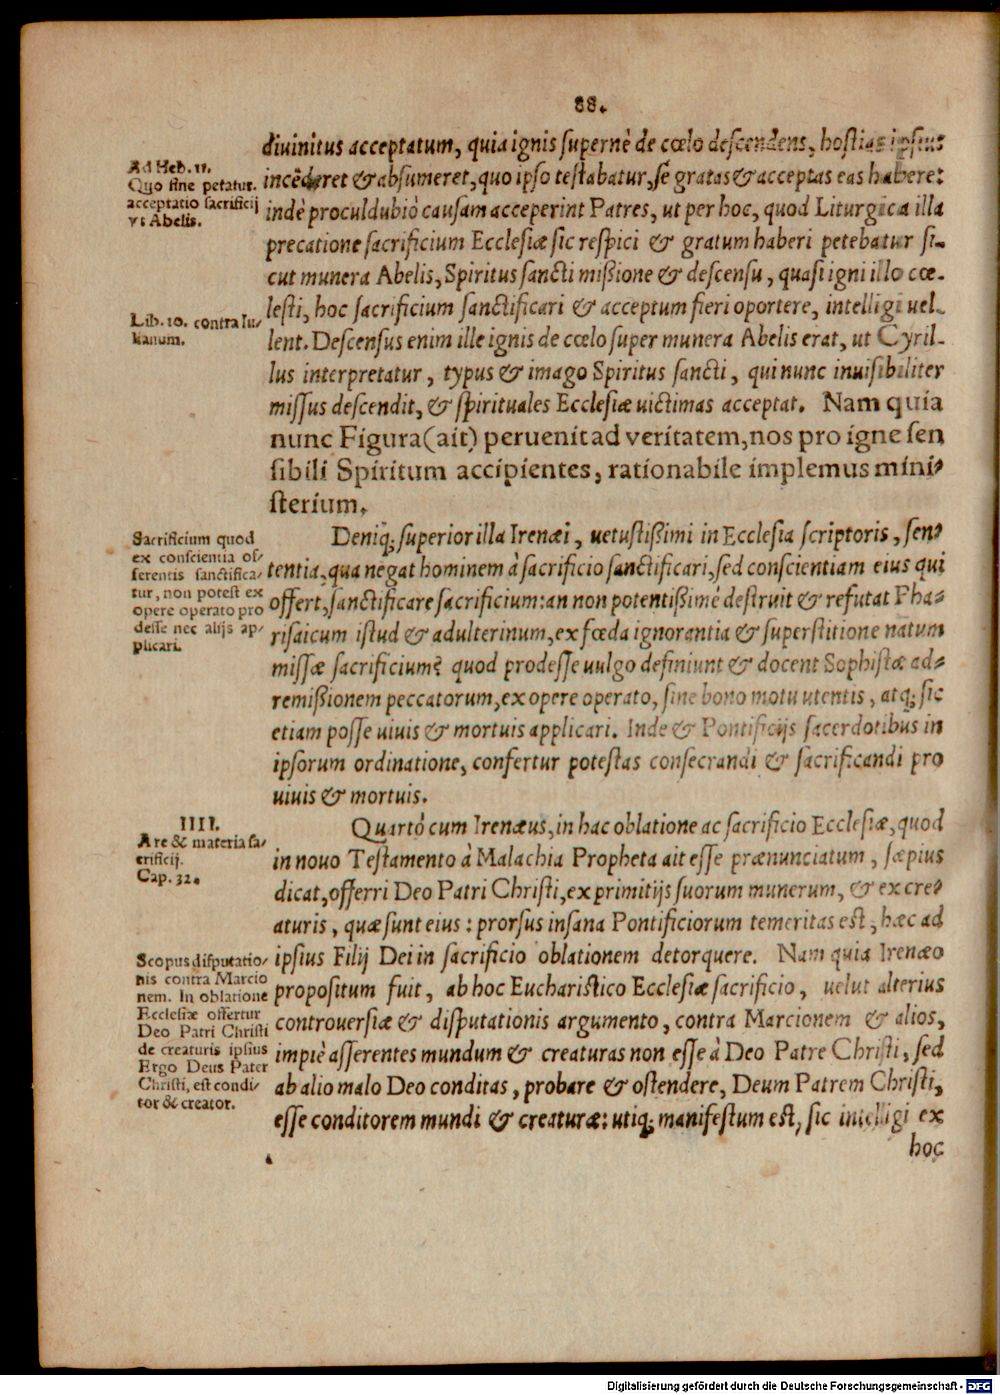 88.
diuinitus acceptatum, quia ignis supernè de cœlo descendens, hostias ipsius
Ad Heb. 11.
Quo fine petatur.
acceptatio sacrificij
vt Abelis.
incēderet & absumeret, quo ipso testabatur, sē gratas & acceptas eas habere:
indè proculdubiò causam acceperint Patres, ut per hoc, quod Liturgica illa
precatione sacrificium Ecclesiæ sic respici & gratum haberi petebatur si-
cut munera Abelis, Spiritus sancti mißione & descensu, quasi igni illo cœ-
lesti, hoc sacrificium sanctificari & acceptum fieri oportere, intelligi uel-
Lib. 10. contra Iu-
lianum.
lent. Descensus enim ille ignis de cœlo super munera Abelis erat, ut Cyril-
lus interpretatur, typus & imago Spiritus sancti, qui nunc inuisibiliter
missus descendit, & spirituales Ecclesiæ uictimas acceptat. Nam quia
nunc Figura (ait) peruenit ad veritatem, nos pro igne sen
sibili Spiritum accipientes, rationabile implemus mini-
sterium.
Deniq; superior illa Irenæi, uetustißimi in Ecclesia scriptoris, sen-
Sacrificium quod
ex conscientia of-
ferentis sanctifica-
tur, non potest ex
opere operato pro
desse nec alijs ap-
plicari.
tentia, qua negat hominem à sacrificio sanctificari, sed conscientiam eius qui
offert, sanctificare sacrificium: an non potentißimè destruit & refutat Pha-
risaicum istud & adulterinum, ex fœda ignorantia & superstitione natum
missæ sacrificium? quod prodesse uulgo definiunt & docent Sophistæ ad-
remißionem peccatorum, ex opere operato, sine bono motu utentis, atq; sic
etiam posse uiuis & mortuis applicari. Inde & Pontificijs sacerdotibus in
ipsorum ordinatione, confertur potestas consecrandi & sacrificandi pro
uiuis & mortuis.
IIII.
Are & materia sa-
crificij.
Cap. 32.
Quartò cum Irenæus, in hac oblatione ac sacrificio Ecclesiæ, quod
in nouo Testamento à Malachia Propheta ait esse prænunciatum, sæpius
dicat, offerri Deo Patri Christi, ex primitijs suorum munerum, & ex cre-
aturis, quæ sunt eius: prorsus insana Pontificiorum temeritas est, hæc ad
Scopus disputatio-
nis contra Marcio
nem. In oblatione
Ecclesiæ offertur
Deo Patri Christi
de creaturis ipsius
Ergo Deus Pater
Christi, est condi-
tor & creator.
ipsius Filij Dei in sacrificio oblationem detorquere. Nam quia Irenæo
propositum fuit, ab hoc Eucharistico Ecclesiæ sacrificio, uelut alterius
controuersiæ & disputationis argumento, contra Marcionem & alios,
impiè asserentes mundum & creaturas non esse à Deo Patre Christi, sed
ab alio malo Deo conditas, probare & ostendere, Deum Patrem Christi,
esse conditorem mundi & creaturæ: utiq; manifestum est, sic intelligi ex
hoc
Digitalisierung gefördert durch die Deutsche Forschungsgemeinschaft - DFG